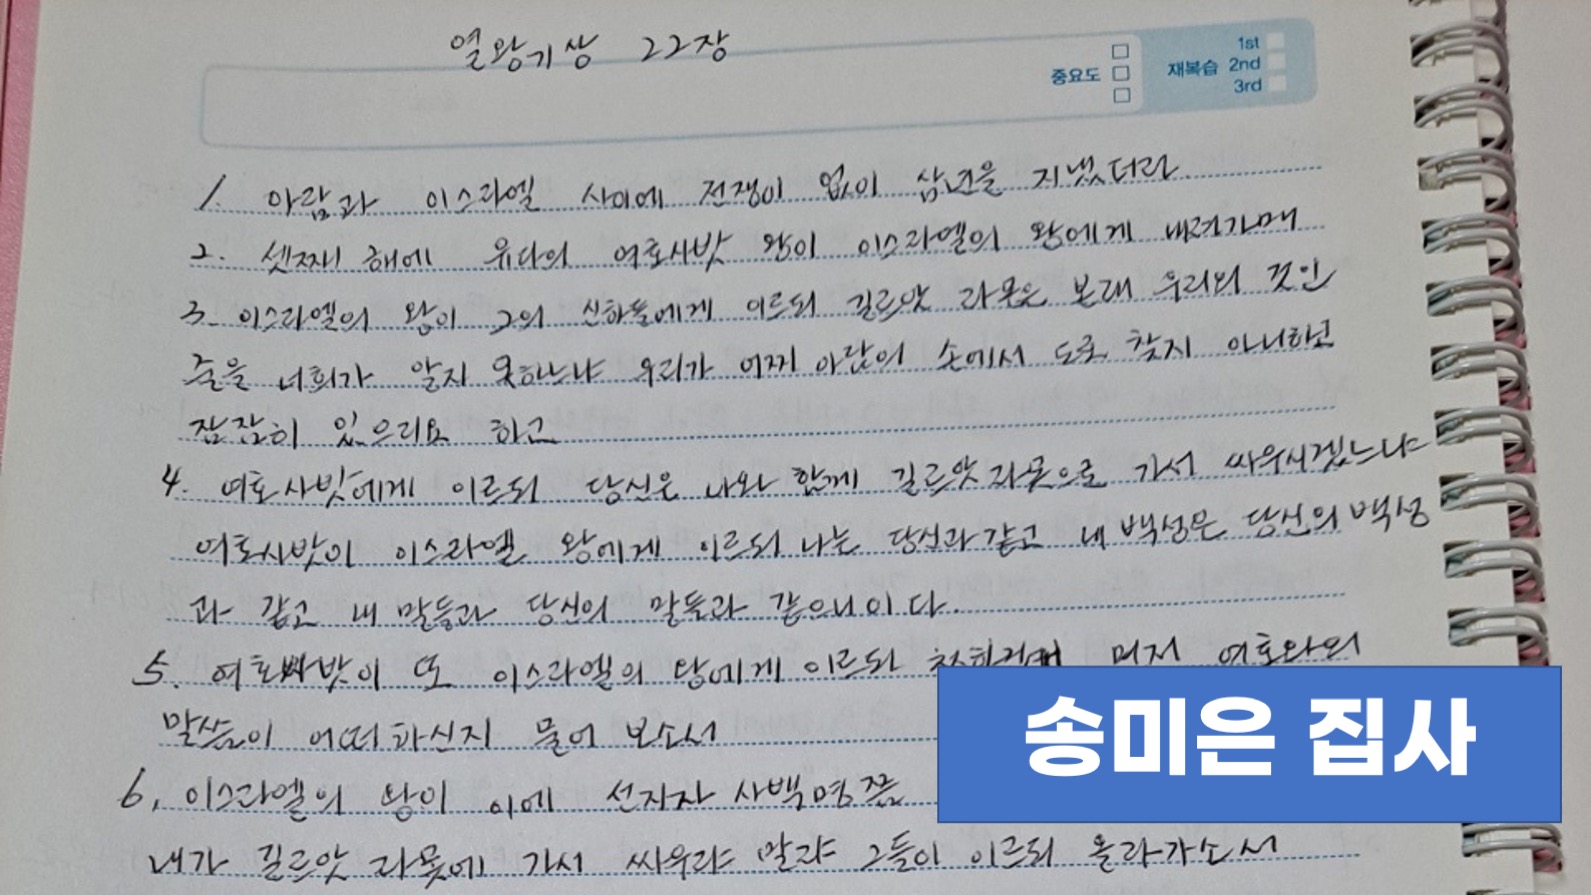 열왕기상 22장
중요도
재복습 1st 2nd 3rd
1. 아람과 이스라엘 사이에 전쟁이 없이 삼년을 지냈더라
2. 셋째 해에 유다의 여호사밧 왕이 이스라엘의 왕에게 내려가매
3. 이스라엘의 왕이 그의 신하들에게 이르되 길르앗 라못은 본래 우리의 것인
줄을 너희가 알지 못하느냐 우리가 어찌 아람의 손에서 도로 찾지 아니하고
잠잠히 있으리요 하고
4. 여호사밧에게 이르되 당신은 나와 함께 길르앗 라못으로 가서 싸우시겠느냐
여호사밧이 이스라엘 왕에게 이르되 나는 당신과 같고 내 백성은 당신의 백성
과 같고 내 말들과 당신의 말들과 같으니이다.
5. 여호사밧이 또 이스라엘의 왕에게 이르되 먼저 여호와의
말씀이 어떠하신지 물어 보소서
송미은 집사
6. 이스라엘의 왕이 이에 선지자 사백명쯤
내가 길르앗 라못에 가서 싸우랴 말랴 그들이 이르되 올라가소서